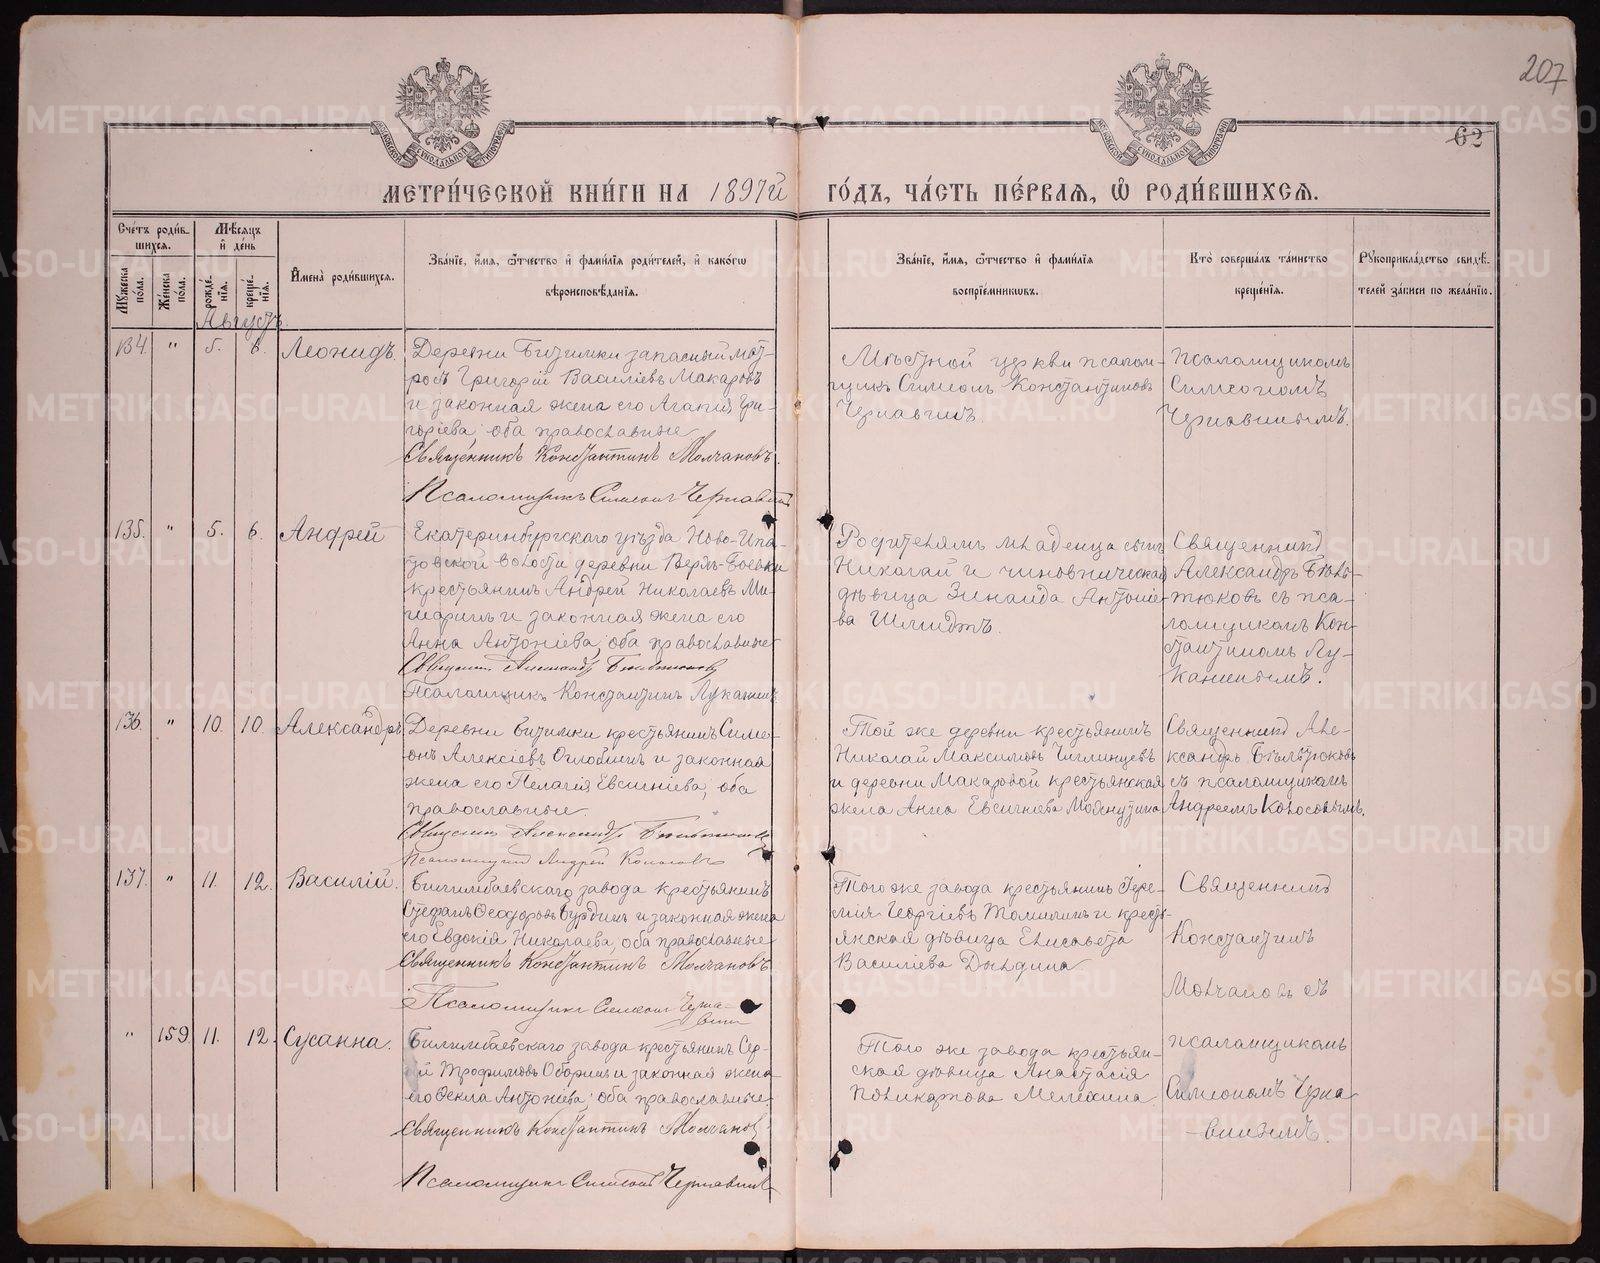 207
62
МЕТРИ́ЧЕСКОЙ КНИ́ГИ НА 1897й ГО́ДЪ, ЧА́СТЬ ПЕ́РВАЯ, Ѿ РОДИ́ВШИХСЯ.
Сче́тъ роди́вшихся.
Му́жеска по́ла.
Же́нска по́ла.
Мѣ́сяцъ и де́нь
рожде́нія.
креще́нія.
Имена̀ роди́вшихся.
Зва́ніе, и́мя, ѻ҆́тчество и фами́лія роди́телей, и како́гѡ
вѣроисповѣ́данія.
Зва́ніе, и́мя, ѻ҆́тчество и фами́лія
воспріе́мникѡвъ.
Кто̀ соверша́лъ та́инство
креще́нія.
Рукоприкла́дство свидѣ́-
телей за́писи по жела́нію.
Августъ.
134. " 5. 6. Леонидъ.
Деревни Битимки запасный мат-
росъ Григорій Василіевъ Макаровъ
и законная жена его Агапія Гри-
горіева; оба православные
Священникъ Константинъ Молчановъ.
Псаломщикъ Симеонъ Чернавинъ
Мѣстной церкви псалом-
щикъ Симеонъ Константиновъ
Чернавинъ.
Псаломщикомъ
Симеономъ
Чернавинымъ.
135. " 5. 6. Андрей
Екатеринбургскаго уѣзда Ново-Ипа-
товской волости деревни Верхъ-Боевки
крестьянинъ Андрей Николаевъ
и законная жена его
Анна Антоніева; оба православные
Псаломщикъ Константинъ Луканинъ
Родителямъ младенца сынъ
Николай и чиновническая
дѣвица Зинаида Антоніе-
ва Шмидтъ.
Священникъ
Александръ
съ пса-
ломщикомъ Кон-
стантиномъ Лу-
канинымъ.
136. " 10. 10. Александръ
Деревни Битимки крестьянинъ Симе-
онъ Алексіевъ Оглоблинъ и законная
жена его Пелагія Евсигніева; оба
православные.
Псаломщикъ Андрей Колосовъ
Той же деревни крестьянинъ
Николай Максимовъ
и деревни Макаровой крестьянская
жена Анна Евсигніева
Священникъ Але-
ксандръ
съ псаломщикомъ
Андреемъ Колосовымъ.
137. " 11. 12. Василій.
Билимбаевскаго завода крестьянинъ
Стефанъ Ѳеодоровъ Бурдинъ и законная жена
его Евдокія Николаева; оба православные
Священникъ Константинъ Молчановъ
Псаломщикъ Симеонъ Черна-
винъ
Того же завода крестьянинъ Іере-
мія Георгіевъ Томилинъ и кресть-
янская дѣвица Елисавета
Василіева Дылдина
Священникъ
Константинъ
Молчановъ съ
псаломщикомъ
Симеономъ Черна-
винымъ.
" 159. 11. 12. Сусанна.
Билимбаевскаго завода крестьянинъ Сер-
гій Трофимовъ Оборинъ и законная жена
его Ѳекла Антоніева; оба православные
Священникъ Константинъ Молчановъ
Псаломщикъ Симеонъ Чернавинъ
Того же завода крестьян-
ская дѣвица Анастасія
Поликарпова Мелехина.
METRIKI.GASO-URAL.RU